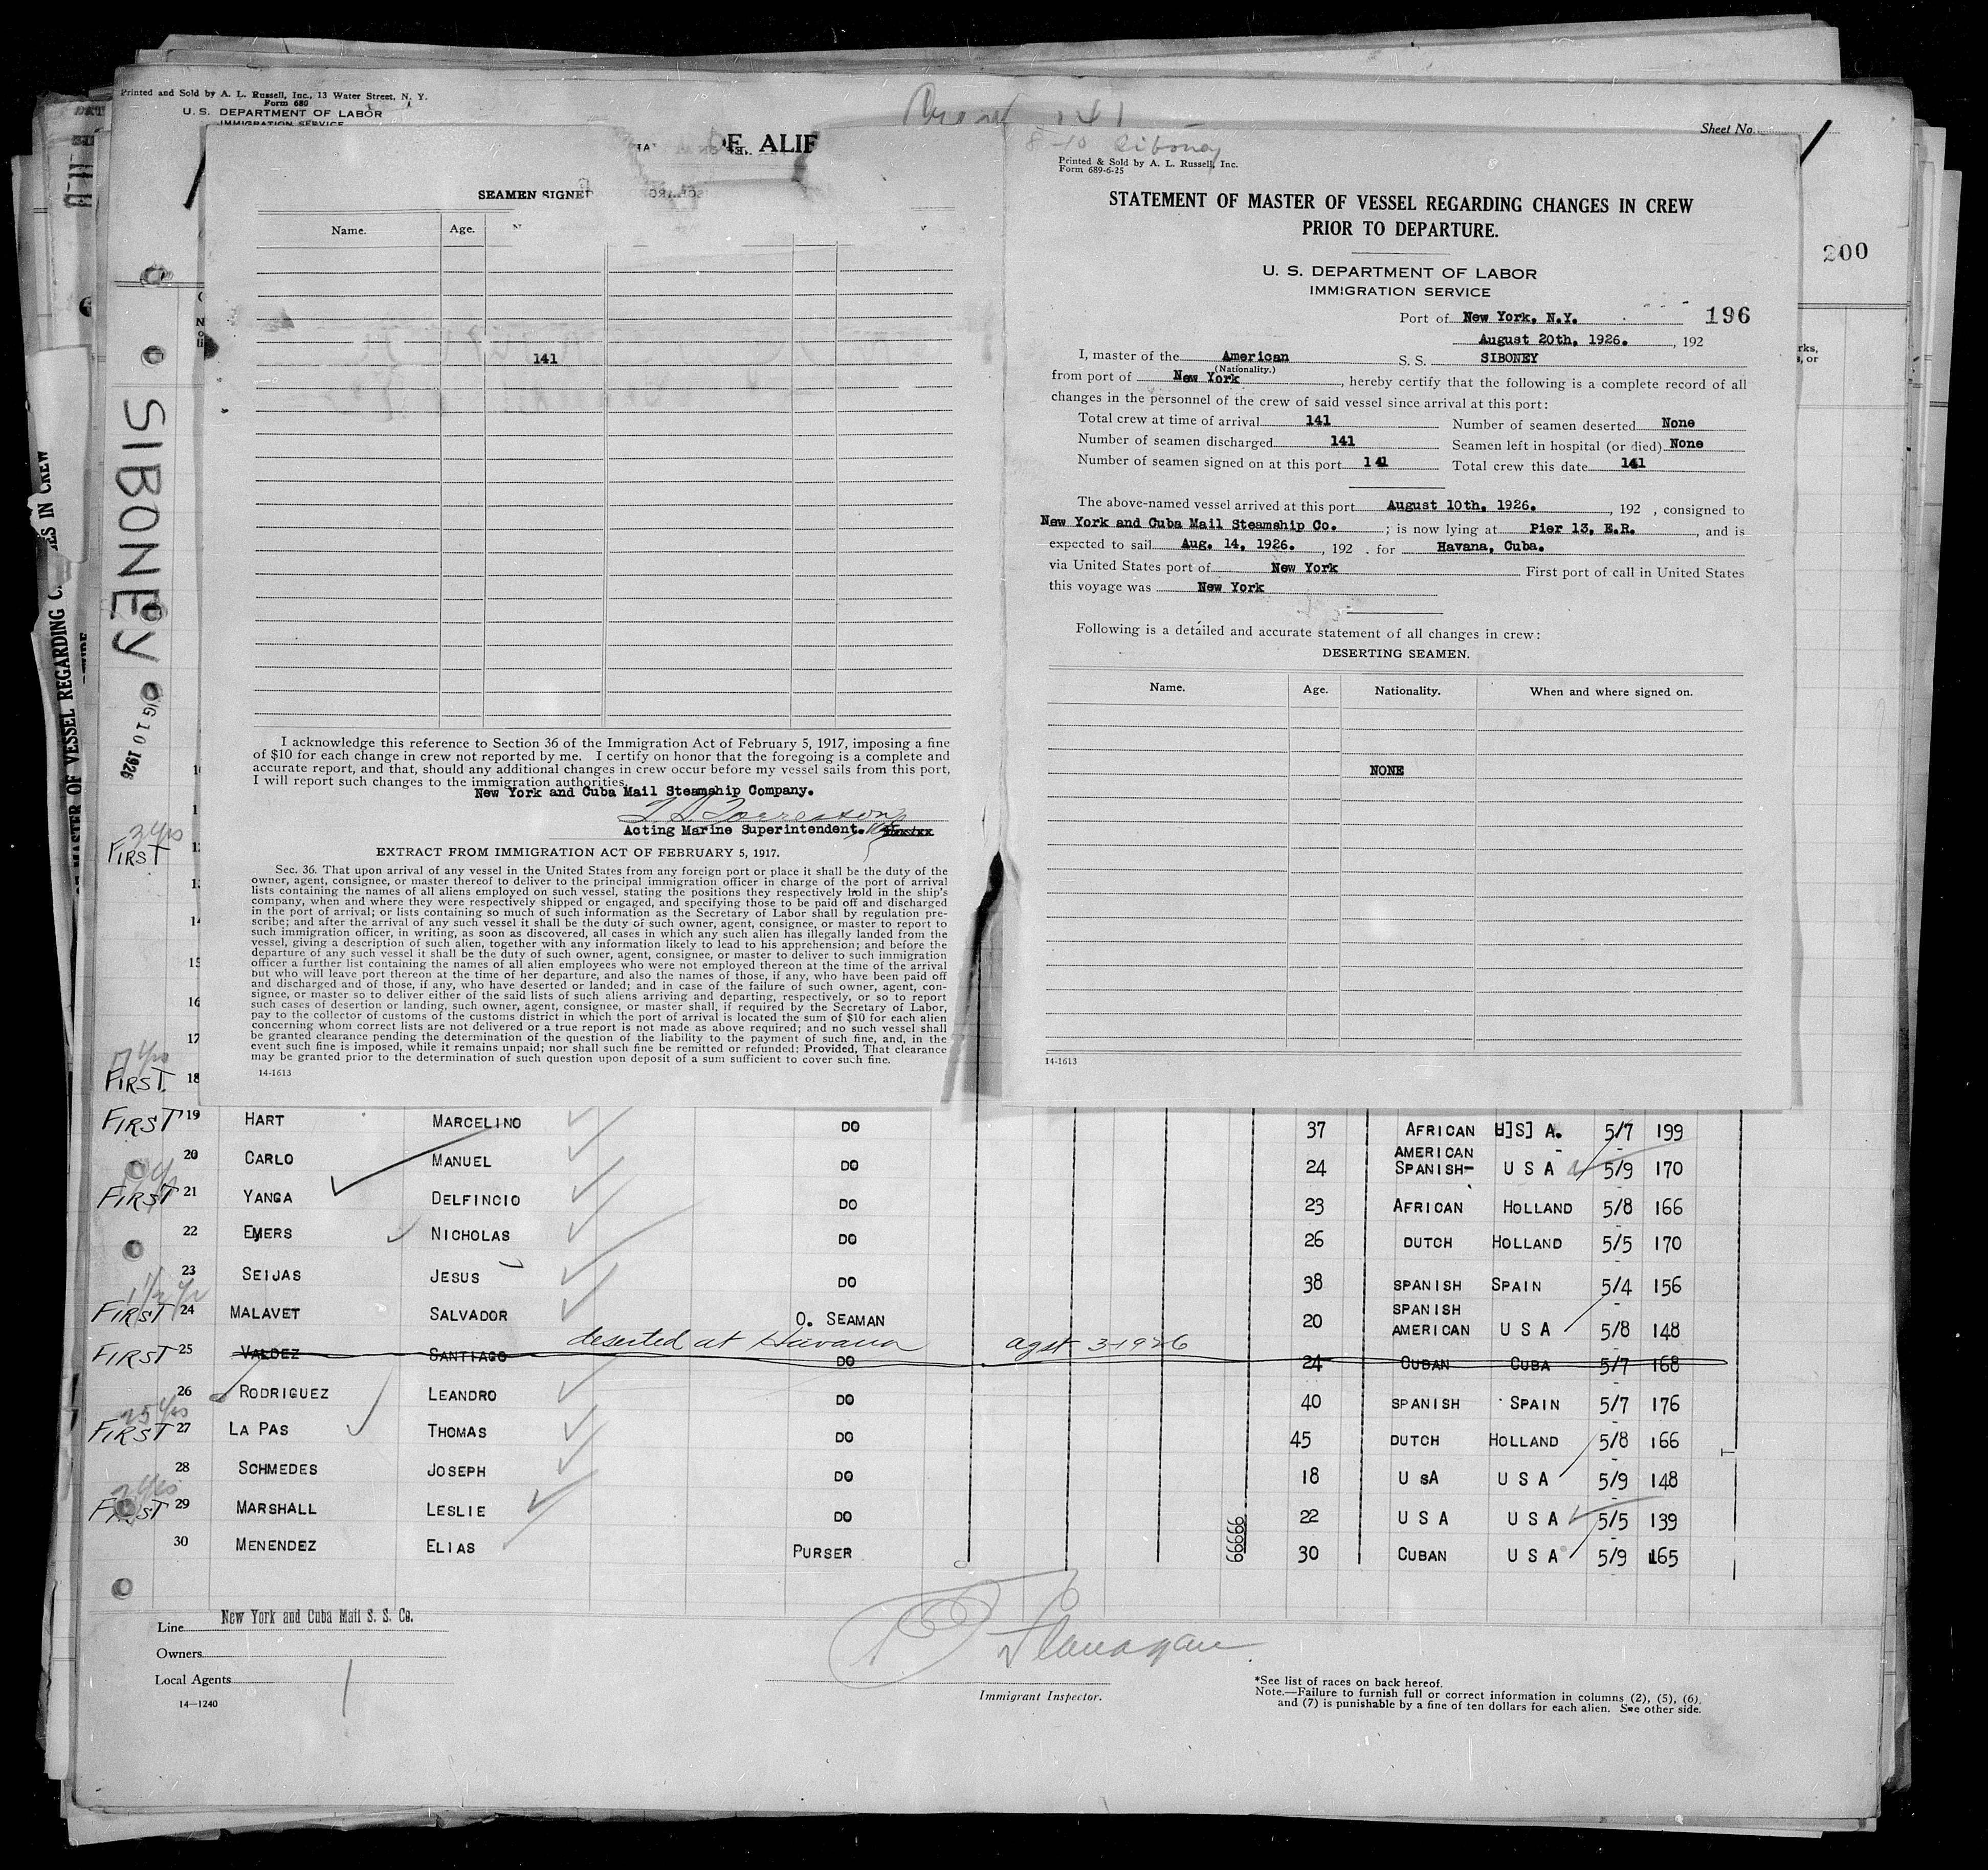 Printed and Sold by A. L. Russell, Inc., 13 Water Street, N. Y.
Form 680
U. S. DEPARTMENT OF LABOR
IMMIGRATION SERVICE
Sheet No.
200
141
SIBONEY
AUG 10 1926
MASTER OF VESSEL REGARDING
IN CREW
OF ALIE
SEAMEN SIGNED
Name. Age.
141
I acknowledge this reference to Section 36 of the Immigration Act of February 5, 1917, imposing a fine
of $10 for each change in crew not reported by me. I certify on honor that the foregoing is a complete and
accurate report, and that, should any additional changes in crew occur before my vessel sails from this port,
I will report such changes to the immigration authorities.
New York and Cuba Mail Steamship Company.
Acting Marine Superintendent.
EXTRACT FROM IMMIGRATION ACT OF FEBRUARY 5, 1917.
Sec. 36. That upon arrival of any vessel in the United States from any foreign port or place it shall be the duty of the
owner, agent, consignee, or master thereof to deliver to the principal immigration officer in charge of the port of arrival
lists containing the names of all aliens employed on such vessel, stating the positions they respectively hold in the ship's
company, when and where they were respectively shipped or engaged, and specifying those to be paid off and discharged
in the port of arrival; or lists containing so much of such information as the Secretary of Labor shall by regulation pre-
scribe; and after the arrival of any such vessel it shall be the duty of such owner, agent, consignee, or master to report to
such immigration officer, in writing, as soon as discovered, all cases in which any such alien has illegally landed from the
vessel, giving a description of such alien, together with any information likely to lead to his apprehension; and before the
departure of any such vessel it shall be the duty of such owner, agent, consignee, or master to deliver to such immigration
officer a further list containing the names of all alien employees who were not employed thereon at the time of the arrival
but who will leave port thereon at the time of her departure, and also the names of those, if any, who have been paid off
and discharged and of those, if any, who have deserted or landed; and in case of the failure of such owner, agent, con-
signee, or master so to deliver either of the said lists of such aliens arriving and departing, respectively, or so to report
such cases of desertion or landing, such owner, agent, consignee, or master shall, if required by the Secretary of Labor,
pay to the collector of customs of the customs district in which the port of arrival is located the sum of $10 for each alien
concerning whom correct lists are not delivered or a true report is not made as above required; and no such vessel shall
be granted clearance pending the determination of the question of the liability to the payment of such fine, and, in the
event such fine is imposed, while it remains unpaid; nor shall such fine be remitted or refunded: Provided, That clearance
may be granted prior to the determination of such question upon deposit of a sum sufficient to cover such fine.
14-1613
8-10 Siboney
Printed & Sold by A. L. Russell, Inc.
Form 689-6-25
STATEMENT OF MASTER OF VESSEL REGARDING CHANGES IN CREW
PRIOR TO DEPARTURE.
U. S. DEPARTMENT OF LABOR
IMMIGRATION SERVICE
Port of New York, N.Y. 196
August 20th, 1926. , 192
I, master of the American S. S. SIBONEY
(Nationality.)
from port of New York , hereby certify that the following is a complete record of all
changes in the personnel of the crew of said vessel since arrival at this port:
Total crew at time of arrival 141 Number of seamen deserted None
Number of seamen discharged 141 Seamen left in hospital (or died) None
Number of seamen signed on at this port 141 Total crew this date 141
The above-named vessel arrived at this port August 10th, 1926. , 192 , consigned to
New York and Cuba Mail Steamship Co. ; is now lying at Pier 13, E.R. , and is
expected to sail Aug. 14, 1926. , 192 . for Havana, Cuba.
via United States port of New York First port of call in United States
this voyage was New York
Following is a detailed and accurate statement of all changes in crew:
DESERTING SEAMEN.
Name. Age. Nationality. When and where signed on.
NONE
14-1613
3 yrs
FIRST
FIRST 18
FIRST 19 HART MARCELINO DO 37 AFRICAN U]S] A. 5/7 199
20 CARLO MANUEL DO 24 AMERICAN SPANISH- U S A 5/9 170
FIRST 21 YANGA DELFINCIO DO 23 AFRICAN HOLLAND 5/8 166
22 EMERS NICHOLAS DO 26 DUTCH HOLLAND 5/5 170
23 SEIJAS JESUS DO 38 SPANISH SPAIN 5/4 156
FIRST 24 MALAVET SALVADOR O. SEAMAN 20 SPANISH AMERICAN U S A 5/8 148
deserted at Havana agst 3-1926
FIRST 25 VALDEZ SANTIAGO DO 24 CUBAN CUBA 5/7 168
26 RODRIGUEZ LEANDRO DO 40 SPANISH SPAIN 5/7 176
25 yrs
FIRST 27 LA PAS THOMAS DO 45 DUTCH HOLLAND 5/8 166
28 SCHMEDES JOSEPH DO 18 U SA U S A 5/9 148
2 yrs
FIRST 29 MARSHALL LESLIE DO 22 U S A U S A 5/5 139
30 MENENDEZ ELIAS PURSER 66666 30 CUBAN U S A 5/9 165
Line New York and Cuba Mail S. S. Co.
Owners
Local Agents
14—1240
Flanagan
Immigrant Inspector.
*See list of races on back hereof.
Note.—Failure to furnish full or correct information in columns (2), (5), (6),
and (7) is punishable by a fine of ten dollars for each alien. See other side.